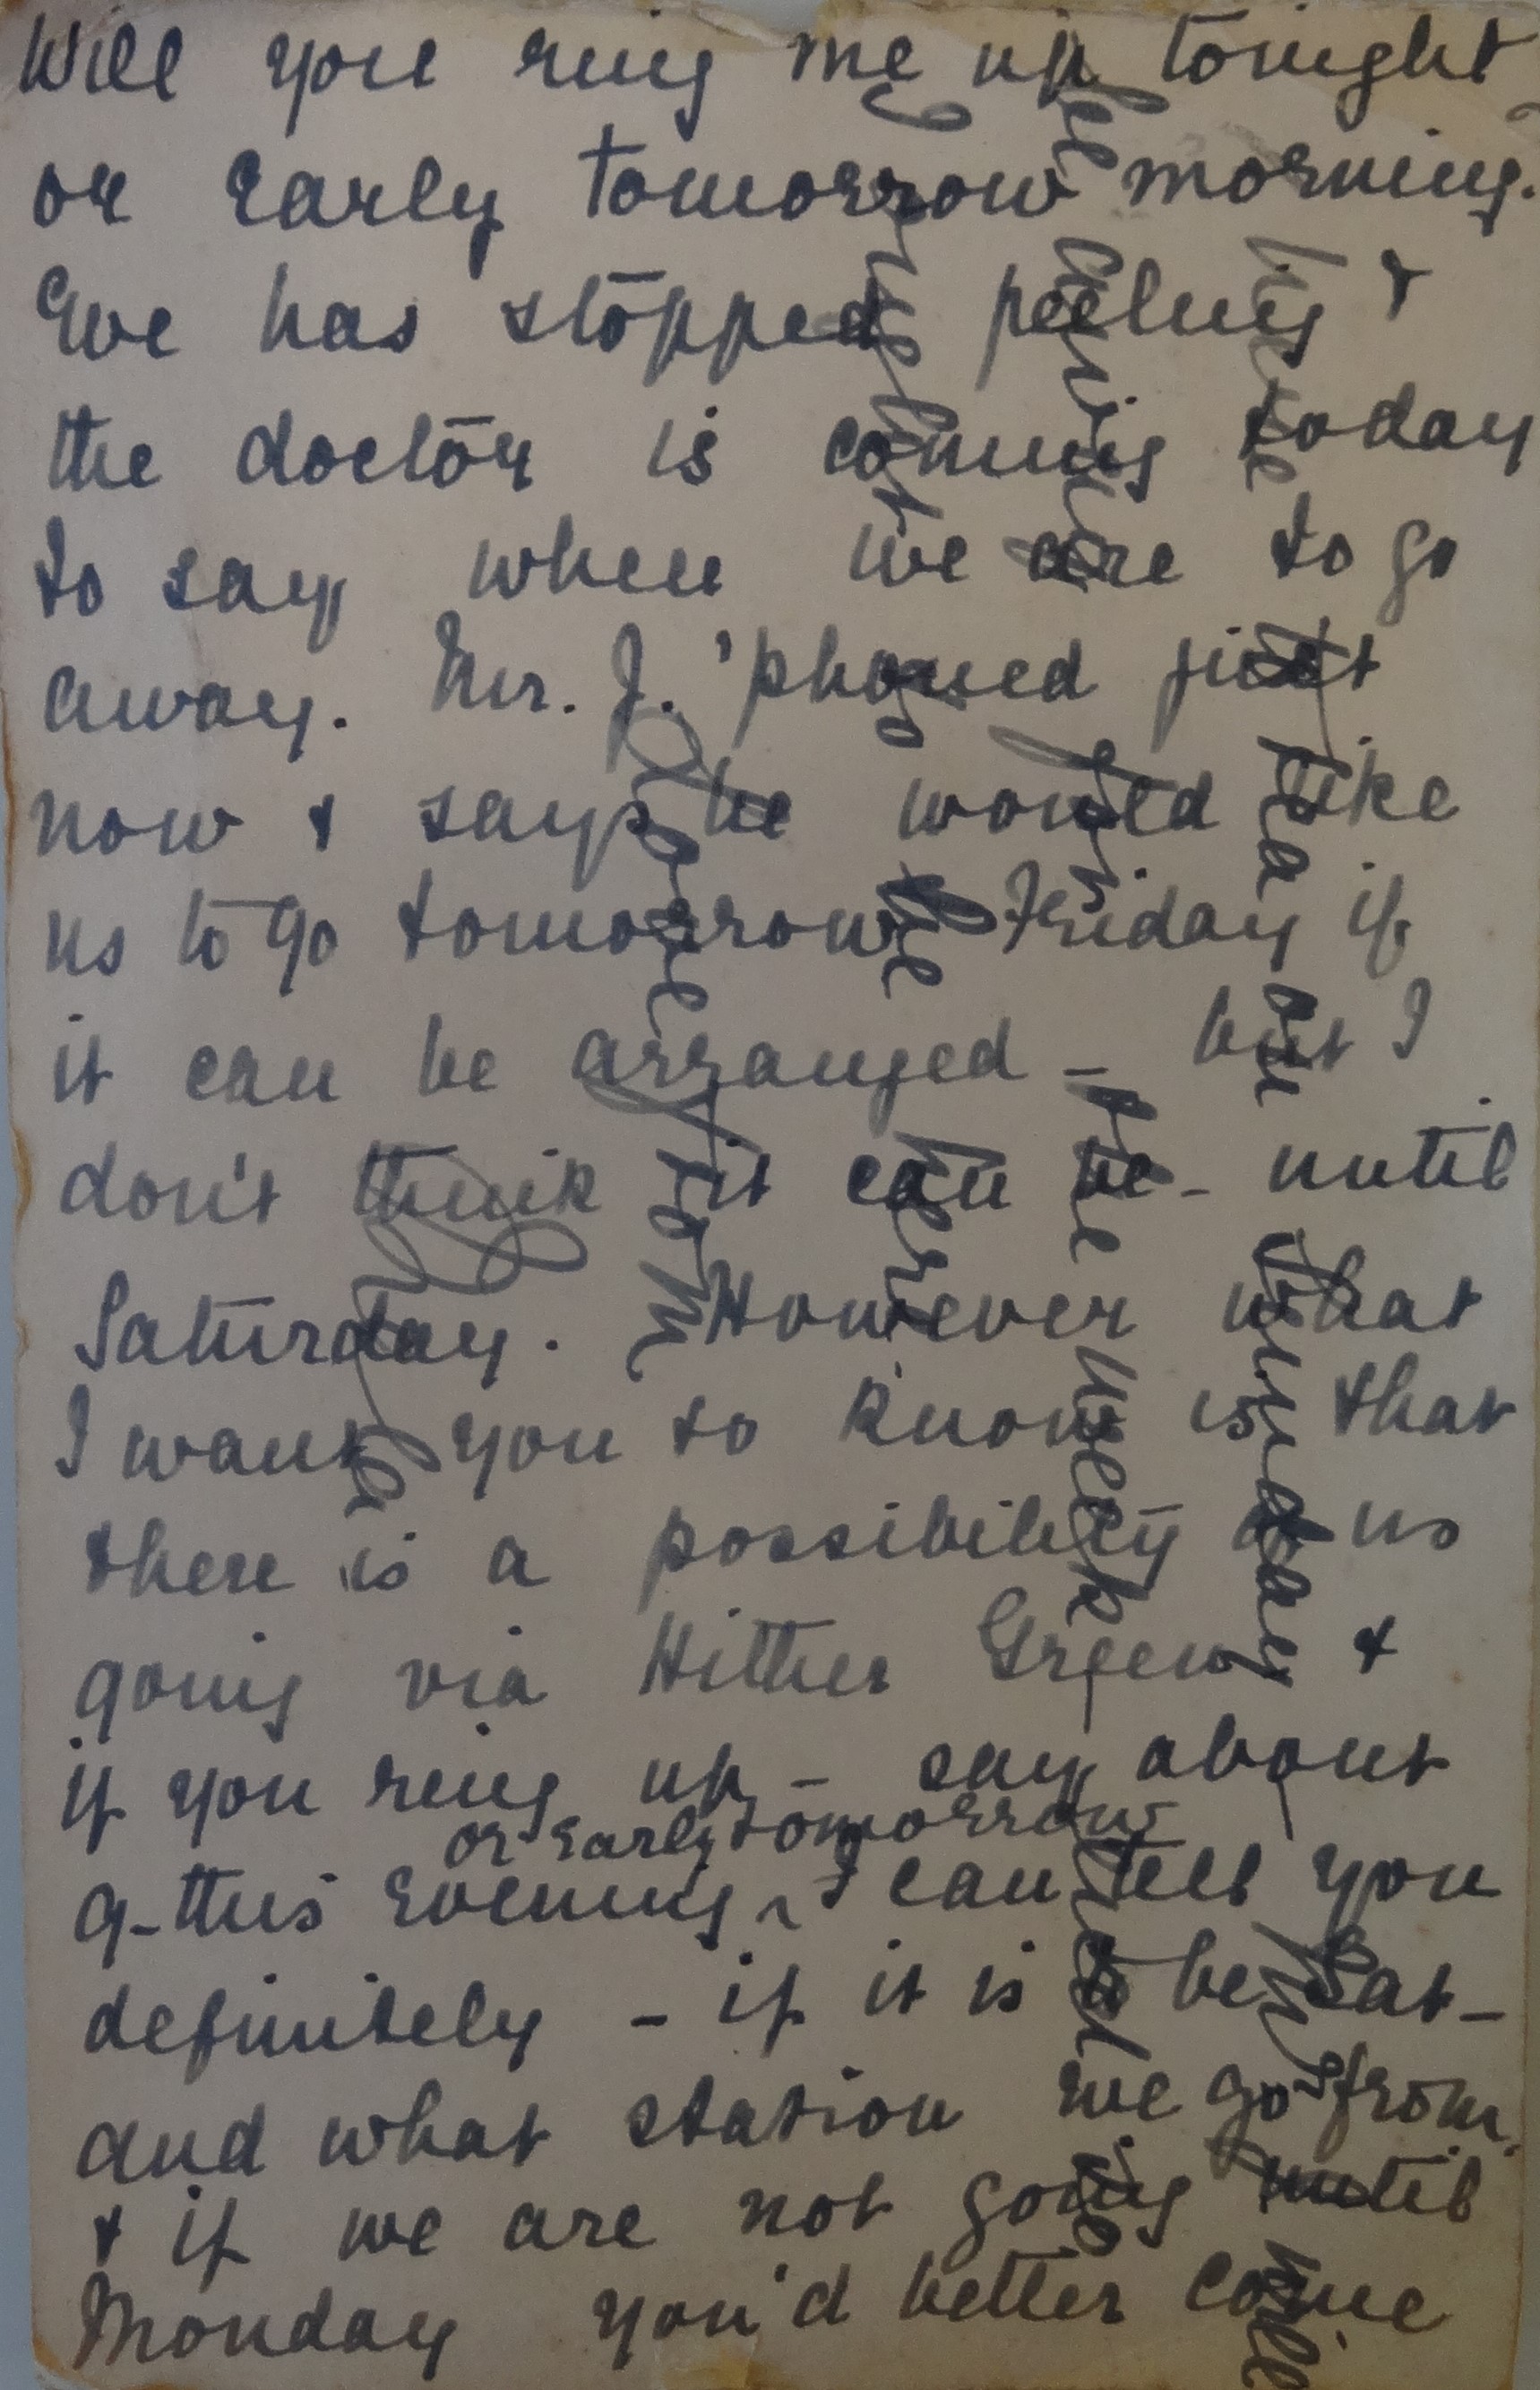 Will you ring me up tonight
or early tomorrow morning.
Eve has stopped peeling &
the doctor is coming today
to say when we are to go
away. Mr. J. 'phoned just
now & says he would like
us to go tomorrow Friday if
it can be arranged – but I
don't think it can be – until
Saturday. However what
I want you to know is that
there is a possibility of us
going via Hither Green &
if you ring up – say about
or early tomorrow
9 – this evening ^ I can tell you
definitely – if it is to be Sat –
and what station we go from.
& if we are not going until
Monday you'd better come
to tea on Sunday will
be for the week
the